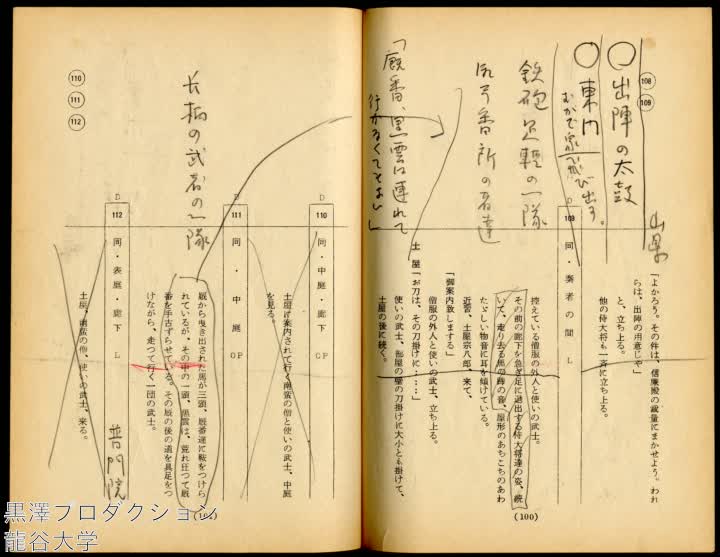 108
109
山県
「よかろう。その件は、信廉殿の裁量にまかせよう。われ
らは、出陣の用意じゃ」
と、立ち上る。
他の侍大将も一斉に立ち上る。
〇出陣の太鼓
〇東門
むかで衆飛び出す。
D
109
同・奏者の間
L
控えている僧服の外人と使いの武士。
その前の廊下を急ぎ足に退出する侍大将達の姿、続
いて、走り去る馬の蹄の音、屋形のあちこちのあわ
たゞしい物音に耳を傾けている。
近習、土屋宗八郎、来て、
「御案内致しまする」
僧服の外人と使いの武士、立ち上る。
土屋「お刀は、その刀掛けに……」
使いの武士、部屋の壁の刀掛けに大小とも掛けて、
土屋の後に続く。
鉄砲足軽の一隊
番所の者達
「厩番、黒雲は連れて
行かなくてもよい」
(100)
D
110
同・中庭・廊下
OP
土屋に案内されて行く南蛮の僧と使いの武士、中庭
を見る。
D
111
同・中庭
OP
厩から曳き出された馬が三頭、厩番達に鞍をつけら
れているが、その中の一頭、黒雲は、荒れ狂って厩
番を手古ずらせている。その厩の後の道を具足をつ
けながら、走って行く一団の武士。
長柄の武者の一隊
D
112
同・表庭・廊下
L
土屋、南蛮の僧、使いの武士、来る。
普門院
110
111
112
黒澤プロダクション
龍谷大学